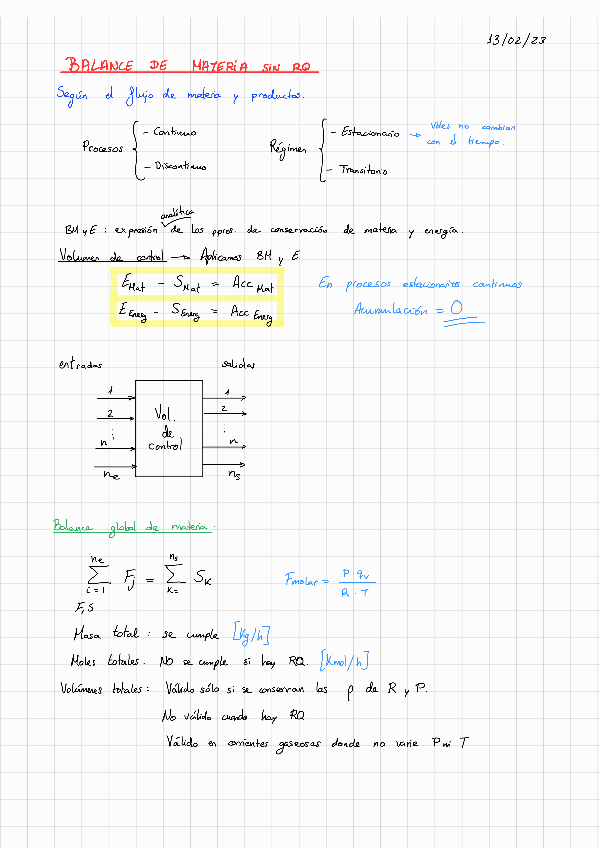 13/02/23
BALANCE DE MATERÍA SIN RQ
Según el flujo de materia y productos.
Procesos
- Continuo
- Discontinuo
Régimen
- Estacionario → Vbles no cambian con el tiempo.
- Transitorio
analítica
BM y E : expresión de los ppios. de conservación de materia y energía.
Volumen de control → Aplicamos BM y E
E Mat - S Mat = Acc Mat
E Energ - S Energ = Acc Energ
En procesos estacionarios continuos
Acumulación = 0
entradas salidas
1 1
2 2
⋮ ⋮
n n
ne ns
Vol.
de
control
Balance global de materia.
ne ns
∑ Fj = ∑ Sk
i=1 k=
F, S
Fmolar = P qv / R · T
Masa total : se cumple [Kg/h]
Moles totales. NO se cumple si hay RQ. [Kmol/h]
Volúmenes totales : Válido sólo si se conservan las ρ de R y P.
No válido cuando hay RQ
Válido en corrientes gaseosas donde no varíe P ni T